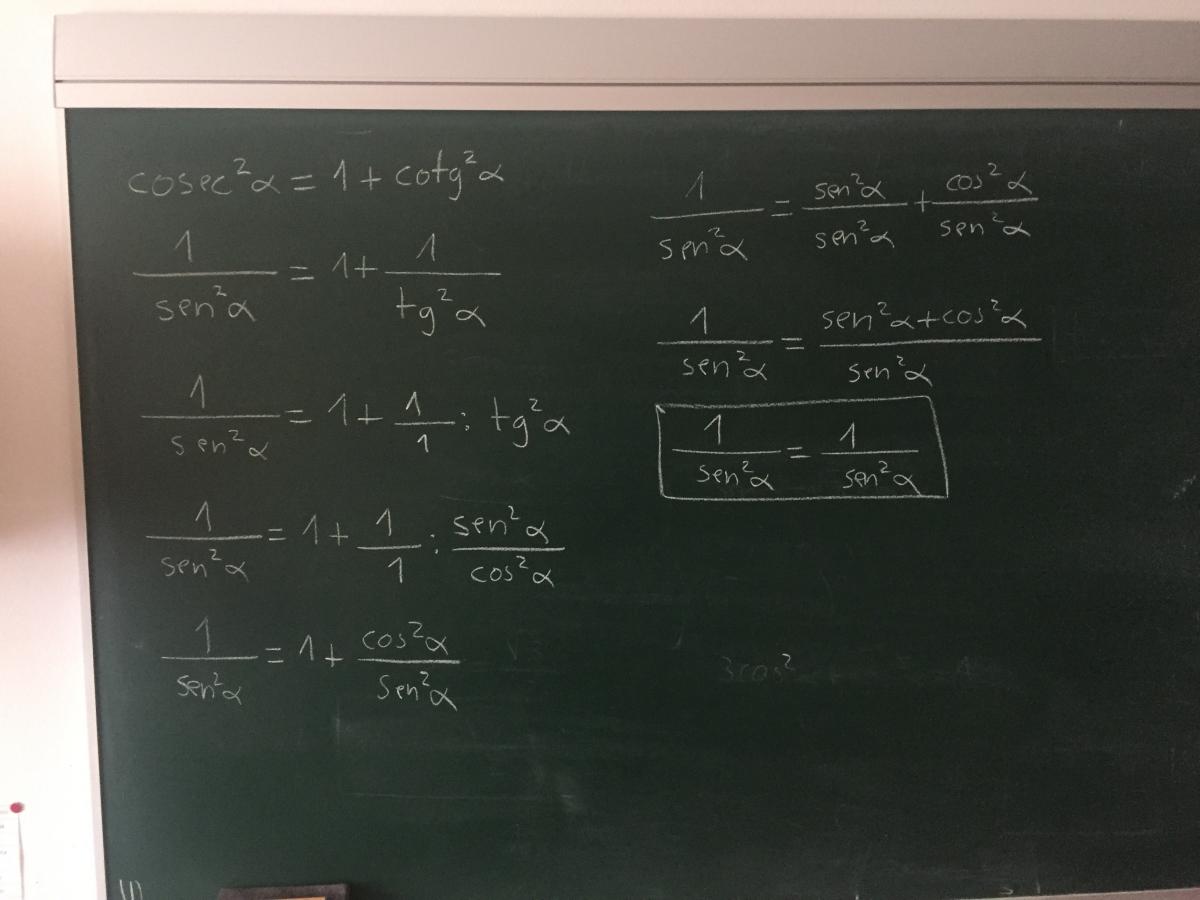 cosec²α = 1 + cotg²α
1/sen²α = 1 + 1/tg²α
1/sen²α = 1 + 1/1 : tg²α
1/sen²α = 1 + 1/1 : sen²α/cos²α
1/sen²α = 1 + cos²α/sen²α
1/sen²α = sen²α/sen²α + cos²α/sen²α
1/sen²α = sen²α + cos²α/sen²α
1/sen²α = 1/sen²α
3cos²